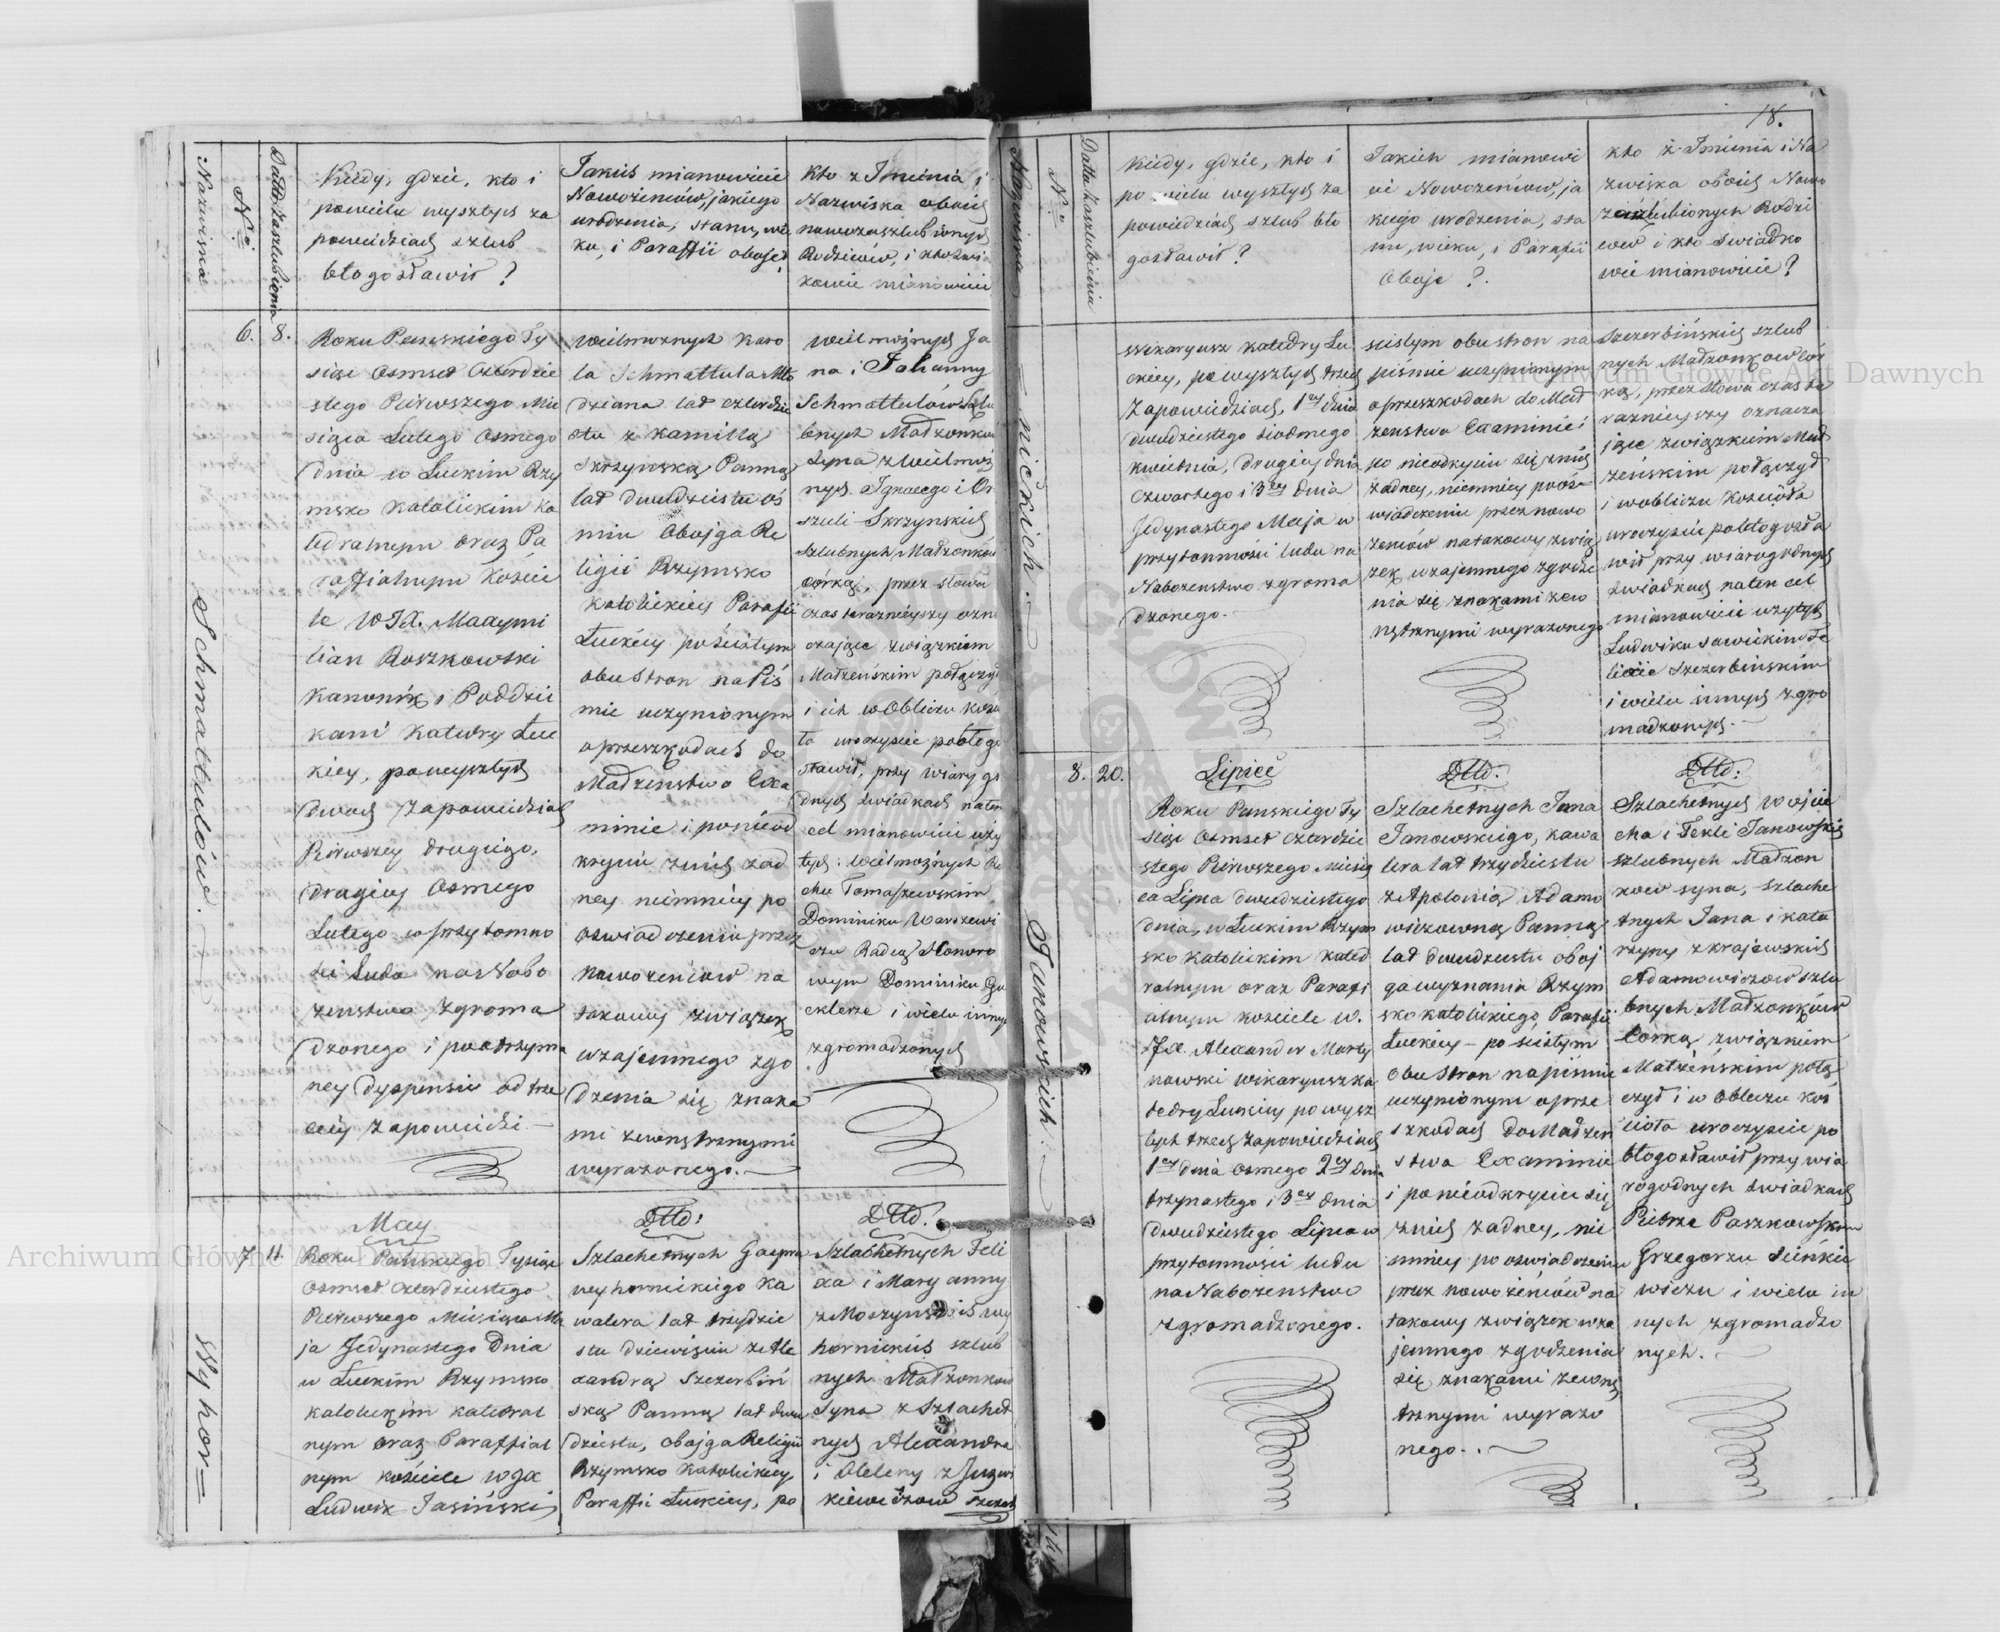 Nazwiska
No.
Datta Zaslubienia
Kiedy, gdzie, kto i
powielu wyszłych za
powiedziach szlub
błogosławił?
Jakich mianowicie
Nowożeńców, jakiego
urodzenia, stanu, wie
ku, i Paraffii obojej
Kto z Imienia i
Nazwiska oboich
nowozaszlubionych
Rodziców, i kto świa
kowie mianowicie
Schmattulów.
6.
8.
Roku Panskiego Ty
siąc Osmset Czterdzie
stego Pierwszego Mie
siąca Lutego Osmego
dnia w Łuckim Rzy
msko Katolickim Ka
tedralnym oraz Pa
raffialnym Kościé
le WJX. Maxymi
lian Roszkowski
Kanonik i Poddzie
kani Katedry Łuc
kiey, powyszłych
dwoch Zapowiedziach
Pierwszey drugiego,
drugiey Osmego
Lutego w przytomno
ści Ludu na Nabo
żenstwo zgroma
dzonego i po otrzyma
ney dyspensie od trze
ciey Zapowiedzi.—
Wielmożnych Karo
la Schmattula Mło
dziana lat czterdzie
stu z Kamillą
Skrzynską Panną
lat dwudziestu oś
miu Obojga Re
ligii Rzymsko
Katolickiey Parafii
Łuckiey pościstym
obustron na Piś
mie uczynionym
oprzeszkodach do
Małżenstwa Exa
minie i ponieod
kryciu żnich żad
ney niemniey po
oswiadczeniu przez
nowożeńców na
takowy związek
wzajemnego zgo
dzenia się znaka
mi zewnętrznymi
wyrażonego.—
Wielmożnych Ja
na i Johanny
Schmattulów Szlu
bnych Małżonków
Syna z Wielmoż
nych Ignacego i Or
szuli Skrzynskich
Szlubnych Małżonków
córką, przez słowa
czas teraznieyszy ozna
czające związkiem
Małżeńskim połączył
i ich w Obliczu kościo
ła uroczyscie pobłogo
sławił, przy wiarygo
dnych świadkach naten
cel mianowicie uży
tych: Wielmożnych Mi
chale Tomaszewskim
Dominiku Warszewi
czu Radcą Honoro
wym Dominiku Gu
cklerze i wielu innych
zgromadzonych
Wyhor=
7.
11.
May
Roku Pańskiego Tysiąc
Osmset czterdziestego
Pierwszego Miesiąca Ma
ja Jedynastego Dnia
w Łuckim Rzymsko
katolickim katedral
nym oraz Paraffial
nym kościele WJX
Ludwik Jasiński
Dttd:
Szlachetnych Gaspra
Wyhornickiego Ka
walera lat trzydzie
stu dziewięciu z Ale
xandrą Szczerbiń
ską Panną lat dwu
dziestu, obojga Religii
Rzymsko Katolickiey,
Paraffii Łuckiey, po
Dttd.
Szlachetnych Feli
xa i Maryanny
z Moszynskich Wy
hornickich szlub
nych Małżonkow
Syna z Szlachet
nych Alexandra
i Heleny z Juzwi
kiewiczow Szczer
18.
Nazwiska
No.
Datta Zaszlubienia
Kiedy, gdzie, kto i
powielu wyszłych za
powiedziach szlub bło
gosławił?
Jakich mianowi
cie Nowożeńców, ja
kiego urodzenia, sta
nu, wieku, i Parafii
Oboje?
kto z Imienia i Na
zwiska oboich Nowo
zaszlubionych Rodzi
ców i kto świadko
wie mianowicie?
=nickich.
wikaryusz katedry Łu
ckiey, powyszłych trzech
Zapowiedziach, 1ey dnia
dwudziestego siodmego
kwietnia, drugiey dnia
czwartego i 3ey dnia
Jedynastego Maja w
przytomności ludu na
Nabożenstwo zgroma
dzonego.—
scistym obustron na
piśmie uczynionym
oprzeszkodach do Mał
żenstwa Examinie i
po nieodkryciu się znich
żadney, niemniey pooś
wiadczeniu przeznowo
żeńców natakowy zwią
zek wzajemnego zgodze
nia się znakami zew
nętrznymi wyrażonego
Szczerbińskich szlub
nych Małżonkow cór
ką, przez słowa czas te
raznieyszy oznacza
jące związkiem Mał
żeńskim połączył
i wobliczu Kościoła
uroczyscie pobłogosła
wił przy wiarogodnych
świadkach naten cel
mianowicie użytych
Ludwiku Sawickim Fe
lixie Szczerbińskim
i wielu innych zgro
madzonych.—
Janowskich.
8.
20.
Lipiec
Roku Panskiego Ty
siąc Osmset czterdzie
stego Pierwszego miesią
ca Lipca dwudziestego
dnia, w Łuckim Rzym
sko katolickim kated
ralnym oraz Parafi
alnym kosciele W.
JX. Alexander Marty
nowski wikaryusz ka
tedry Łuckiey po wysz
łych trzech zapowiedziach
1ey dnia osmego 2ey dnia
trzynastego i 3ey dnia
dwudziestego Lipca w
przytomności ludu
na Nabożenstwo
zgromadzonego.
Dttd.
Szlachetnych Jana
Janowskiego, kawa
lera lat trzydziestu
z Apolonią Adamo
wiczowną Panną
lat dwudziestu oboj
ga wyznania Rzym
sko katolickiego, Parafii
Łuckiey — po ścistym
obu stron napismie
uczynionym oprze
szkodach do Małżen
stwa Examinie
i po nieodkryciu się
znich żadney, nie
mniey po oswiadczeniu
przez nowożeńców na
takowy związek wza
jemnego zgodzenia
się znakami zewnę
trznymi wyrażo
nego..—
Dttd:
Szlachetnych Wojcie
cha i Tekli Janowskich
szlubnych Małżon
kow syna, szlache
tnych Jana i kata
rzyny z krajewskich
Adamowiczow szlu
bnych Małżonków
Corką związkiem
Małżeńskim połą
czył i w Obliczu koś
cioła uroczyscie po
błogosławił przy wia
rogodnych świadkach
Pietrze Paszkowskim
Grzegorzu Sieńkie
wiczu i wielu in
nych zgromadzo
nych.—
Archiwum Główne Akt Dawnych
Archiwum Główne Akt Dawnych